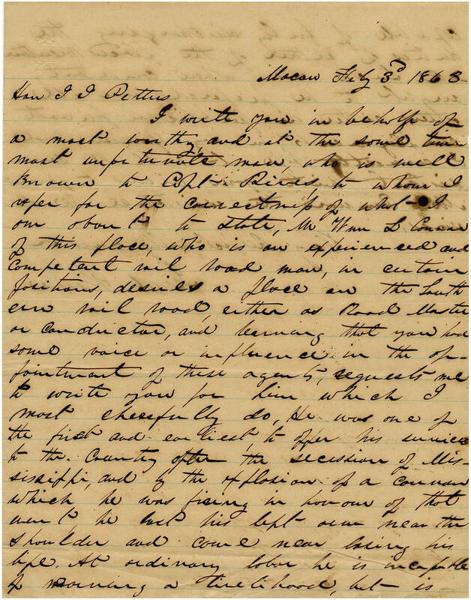 Macon Feby 3rd 1863
Hon J J Pettus
I write you in behalf of
a most worthy, and at the same time
most unfortunate man, who is well
known to Capt Rives, to whom I
refer for the correctness of what I
am about to state, Mr Wm L
of this place, who is an experienced and
competent rail road man, in certain
positions, desires a place on the South
ern rail road, either as Road Master
or conductor, and learning that you have
some voice or influence in the ap-
pointment of these agents, requests me
to write you for him which I
most cheerfully do, He was one of
the first and earliest, to offer his services
to the Country after the secession of Mis-
sissippi, and by the explosion of a cannon
which he was firing in honour of that
event he lost his left arm near the
shoulder and came near losing his
life. At ordinary labor he is incapable
of earning a livelihood, but is